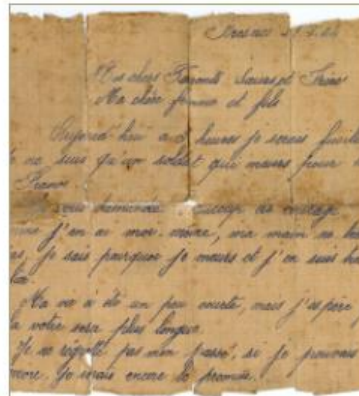 Fresnes 21.2.44
Mes chers Parents Sœurs et Frères
Ma chère femme et fils
Aujourd'hui a 3 heures je serais fusillé
ne suis qu'un soldat qui meurs pour
France
vous demande beaucoup de courage
j'en ai moi-, ma main ne
, je sais pourquoi je meurs et j'en suis

Ma vie a été un peu courte, mais j'espère
la votre sera plus longue.
Je ne regrette pas mon passé, si je pouvais
encore je serais encore le premier.